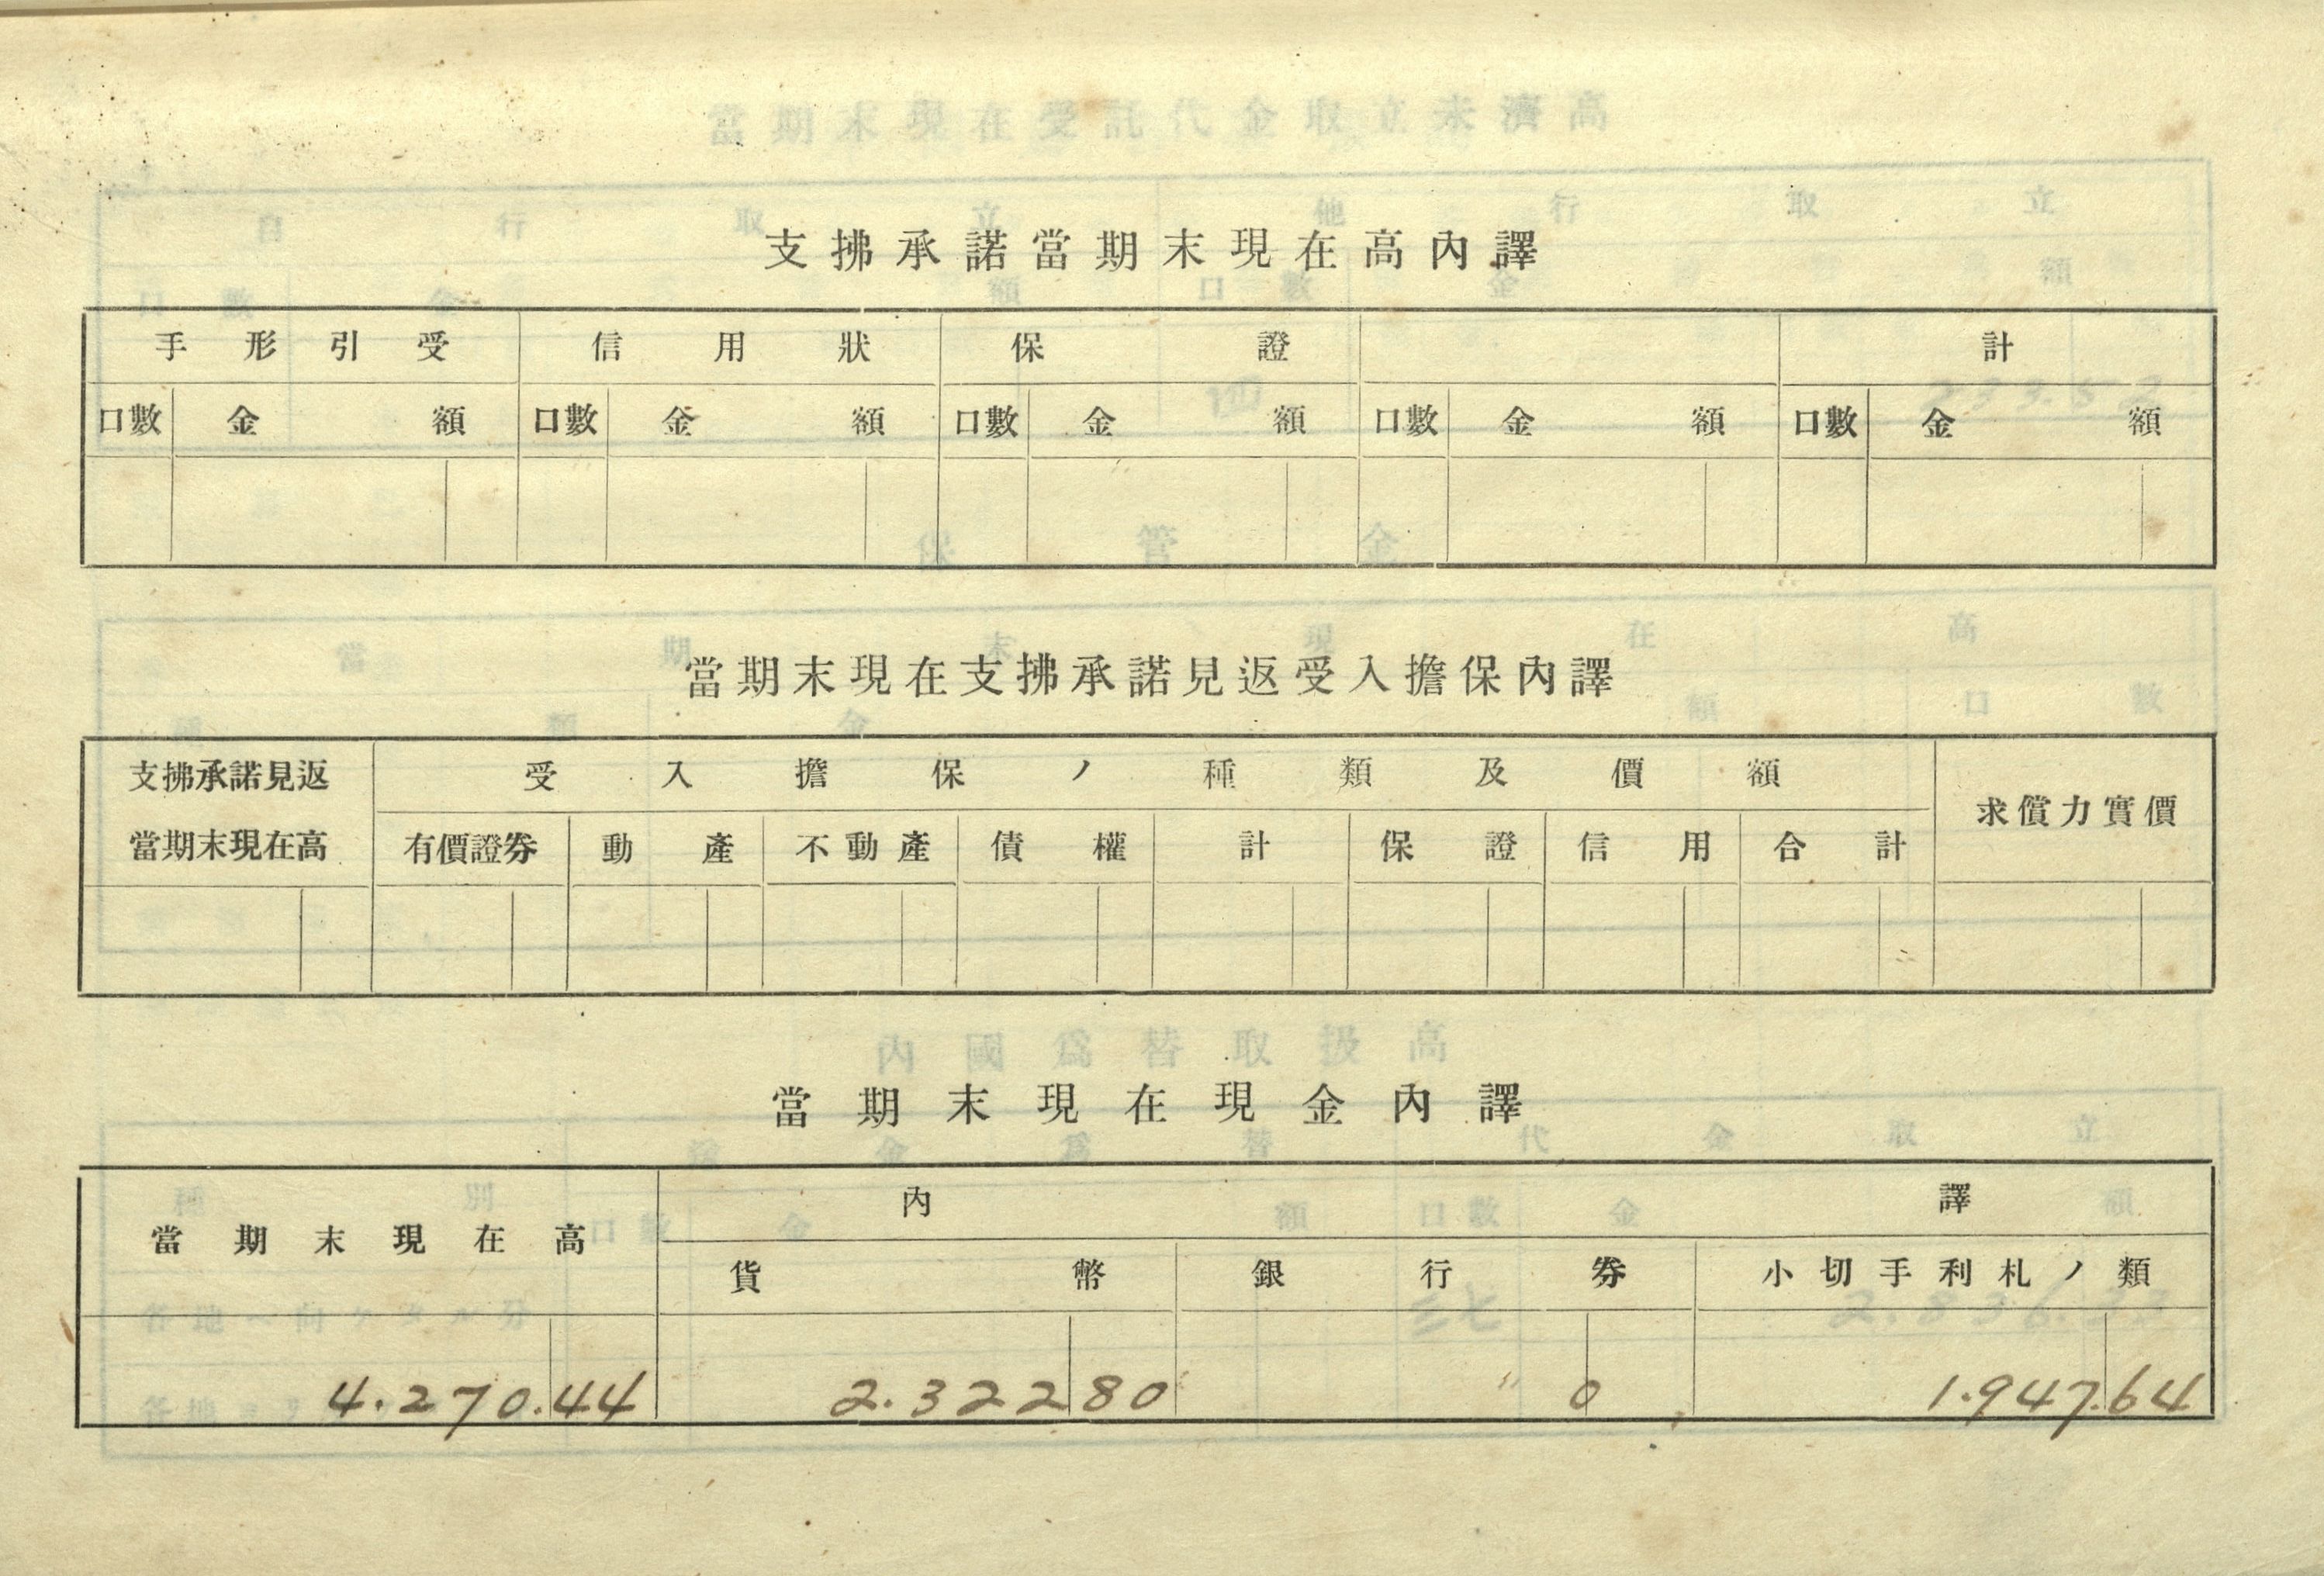 支拂承諾當期末現在高內譯
手形引受 信用狀 保證 計
口數 金額 口數 金額 口數 金額 口數 金額 口數 金額
當期末現在支拂承諾見返受入擔保內譯
支拂承諾見返 受入擔保ノ種類及價額 求償力實價
當期末現在高 有價證券 動產 不動產 債權 計 保證 信用 合計
當期末現在現金內譯
當期末現在高 內譯
貨幣 銀行券 小切手利札ノ類
4.270.44 2.322 80 〃 0 1.947.64